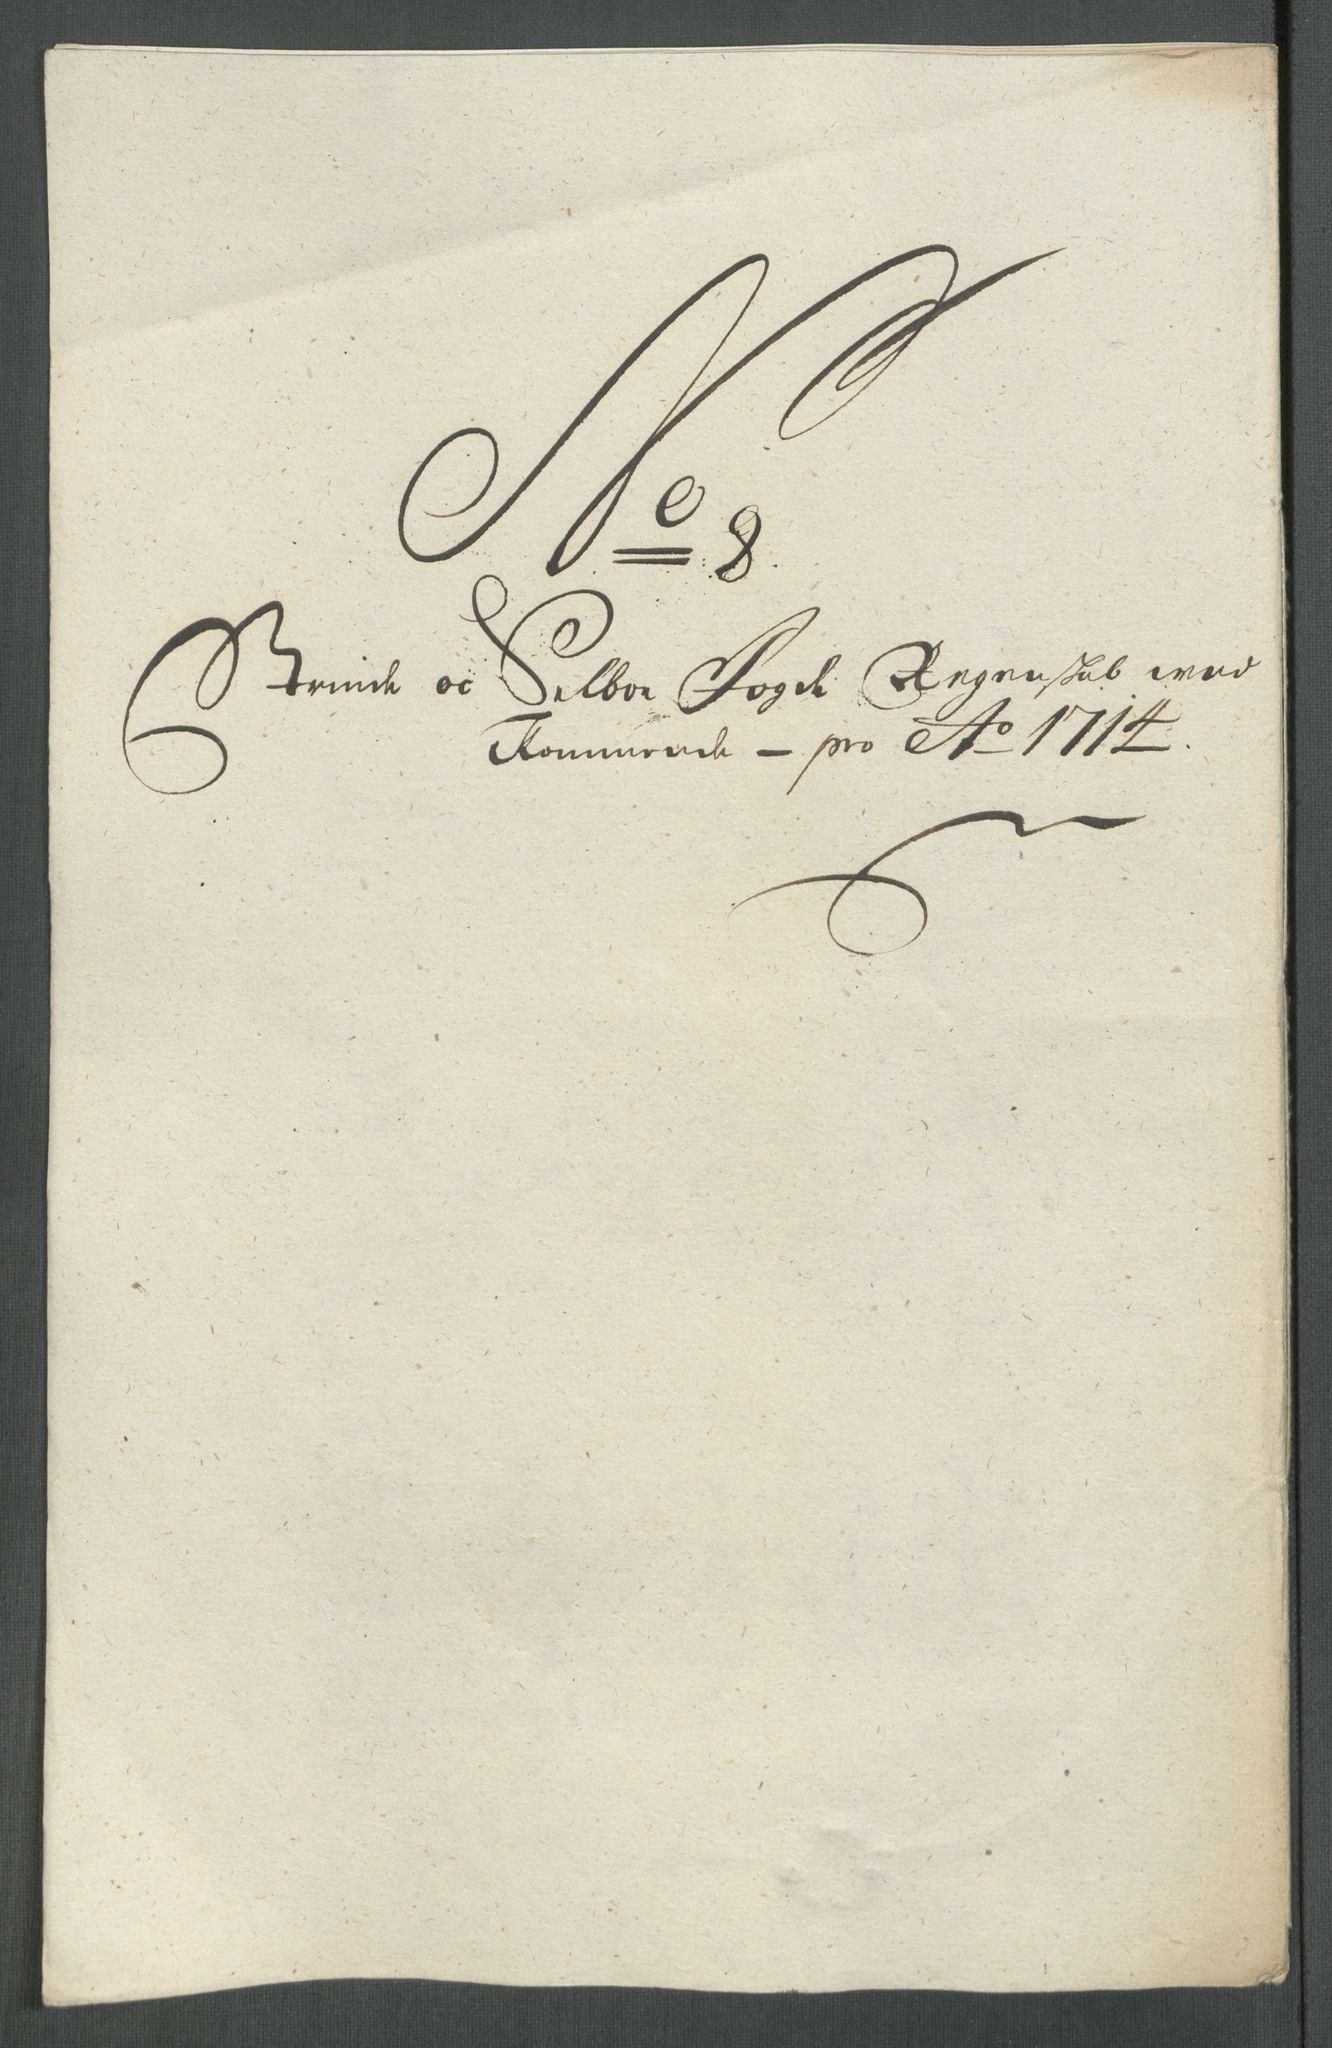 No 8
Strinde oc Selboe Fogde Regenskab ved
Kommende - pro Ao 1714.